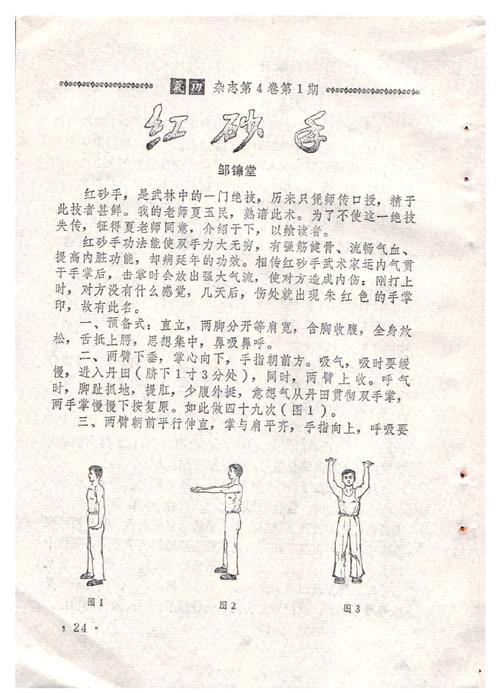 气功 杂志第4卷第1期
红砂手
邹锦堂
红砂手，是武林中的一门绝技，历来只凭师传口授，精于
此技者甚鲜。我的老师夏玉民，熟谙此术。为了不使这一绝技
失传，征得夏老师同意，介绍于下，以飨读者。
红砂手功法能使双手力大无穷，有强筋健骨、流畅气血、
提高内脏功能，却病延年的功效。相传红砂手武术家运内气贯
于手掌后，击掌时会放出强大气流，使对方造成内伤；刚打上
时，对方没有什么感觉，几天后，伤处就出现朱红色的手掌
印，故有此名。
一、预备式：直立，两脚分开等肩宽，含胸收腹，全身放
松，舌抵上腭，思想集中，鼻吸鼻呼。
二、两臂下垂，掌心向下，手指朝前方。吸气，吸时要缓
慢，进入丹田（脐下1寸3分处），同时，两臂上收。呼气
时，脚趾抓地，提肛，少腹外挺，意想气从丹田贯彻双手掌，
两手掌慢慢下按复原。如此做四十九次（图1）。
三、两臂朝前平行伸直，掌与肩平齐，手指向上，呼吸要
图1
图2
图3
·24·